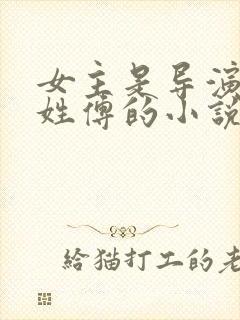 女主是导演
姓傅的小說
給猫打工的老